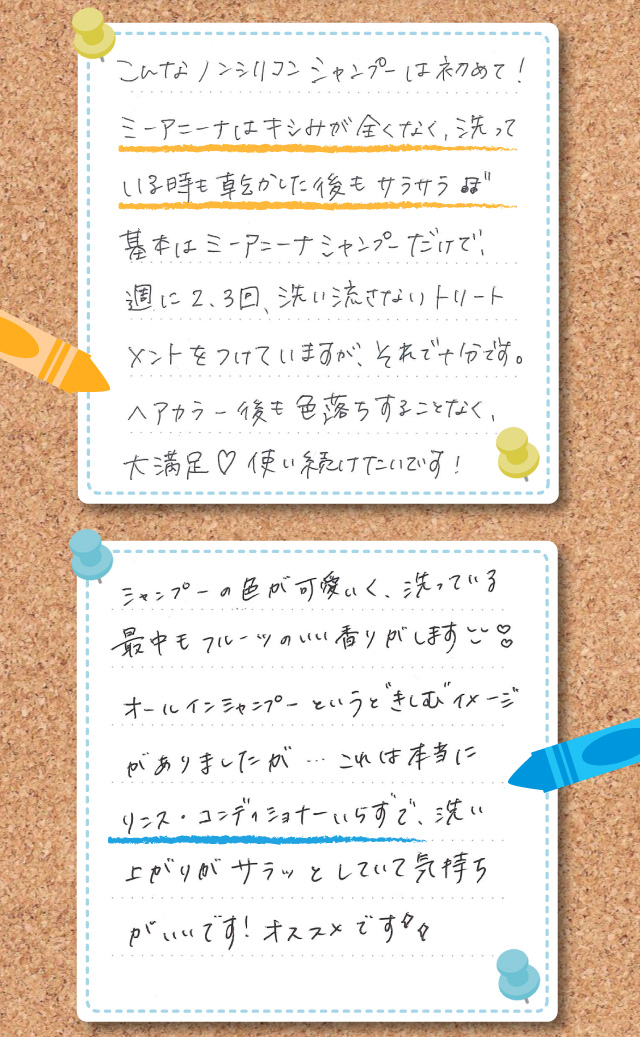 こんなノンシリコンシャンプーは初めて!
ミーアニーナはキシみが全くなく、洗って
いる時も乾かした後もサラサラ
基本はミーアニーナシャンプーだけで、
週に2、3回、洗い流さないトリート
メントをつけていますが、それで十分です。
ヘアカラー後も色落ちすることなく、
大満足♡使い続けたいです!
シャンプーの色が可愛いく、洗っている
最中もフルーツのいい香りがします
オールインシャンプーというときしむイメージ
がありましたが…これは本当に
リンス・コンディショナーいらずで、洗い
上がりがサラッとしていて気持ち
がいいです!オススメです